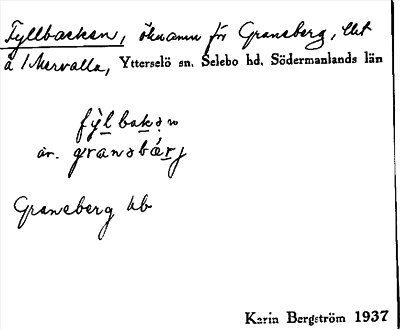 Fyllbacken, öknamn för Graneberg, lht
å / Marvalla, Ytterselö sn. Selebo hd. Södermanlands län
fỳl bak
äv. gransbárj
Graneberg kb
Karin Bergström 1937